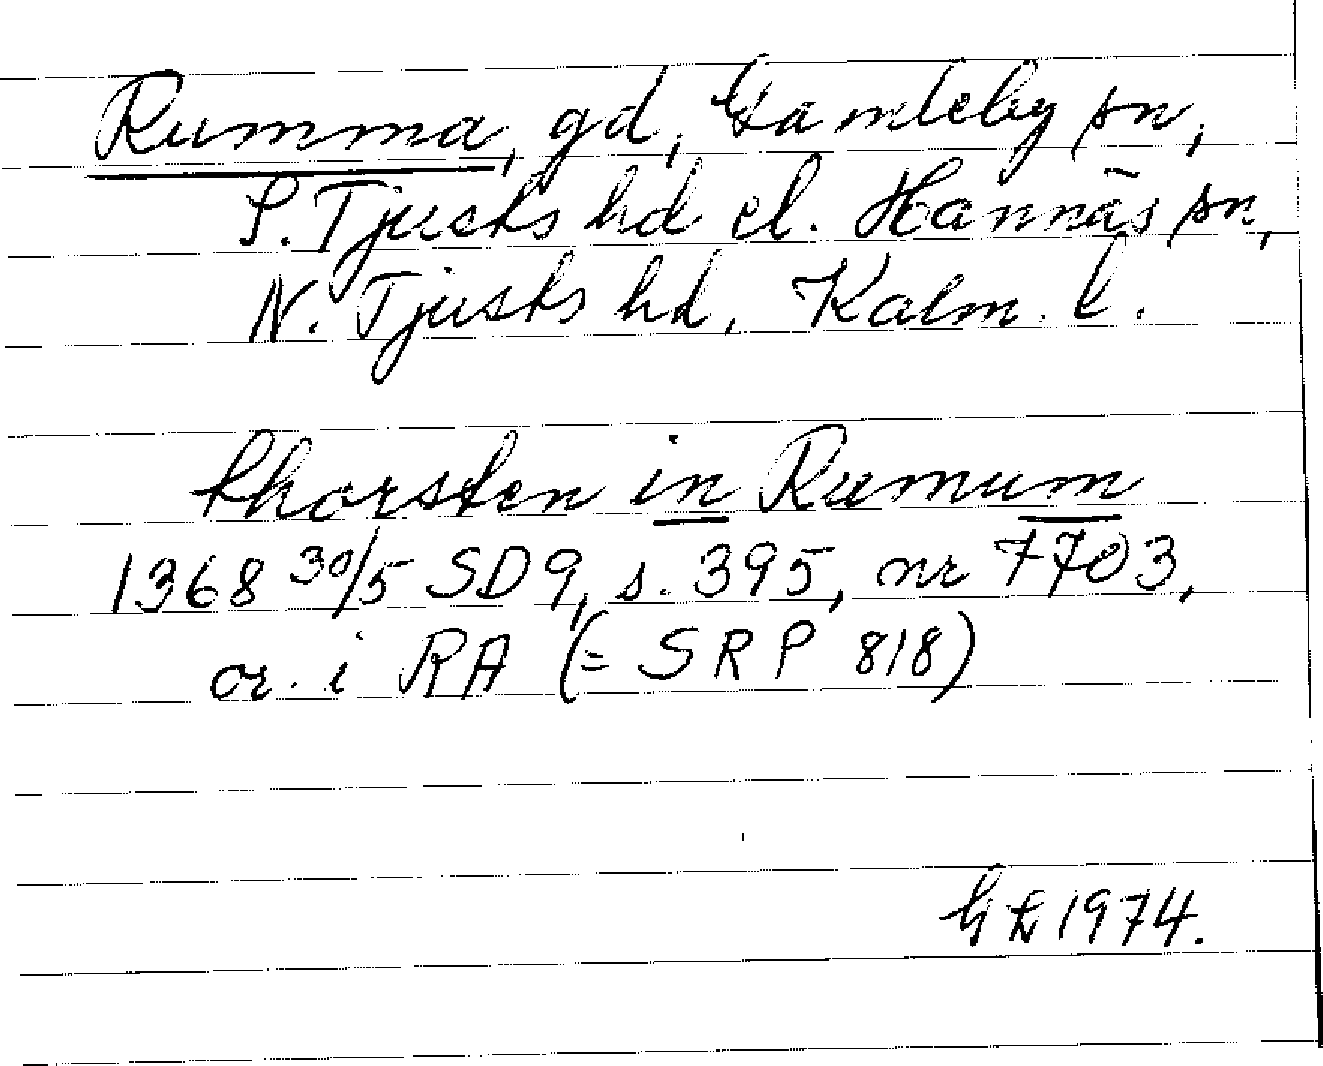 Rumma, gd, Gamleby sn,
S. Tjusts hd el. Hannäs sn,
N. Tjusts hd, Kalm. l.
thorsten in Rumum
1368 30/5 SD9, s. 395, nr 7703,
or. i RA (= SRP 818)
1974.